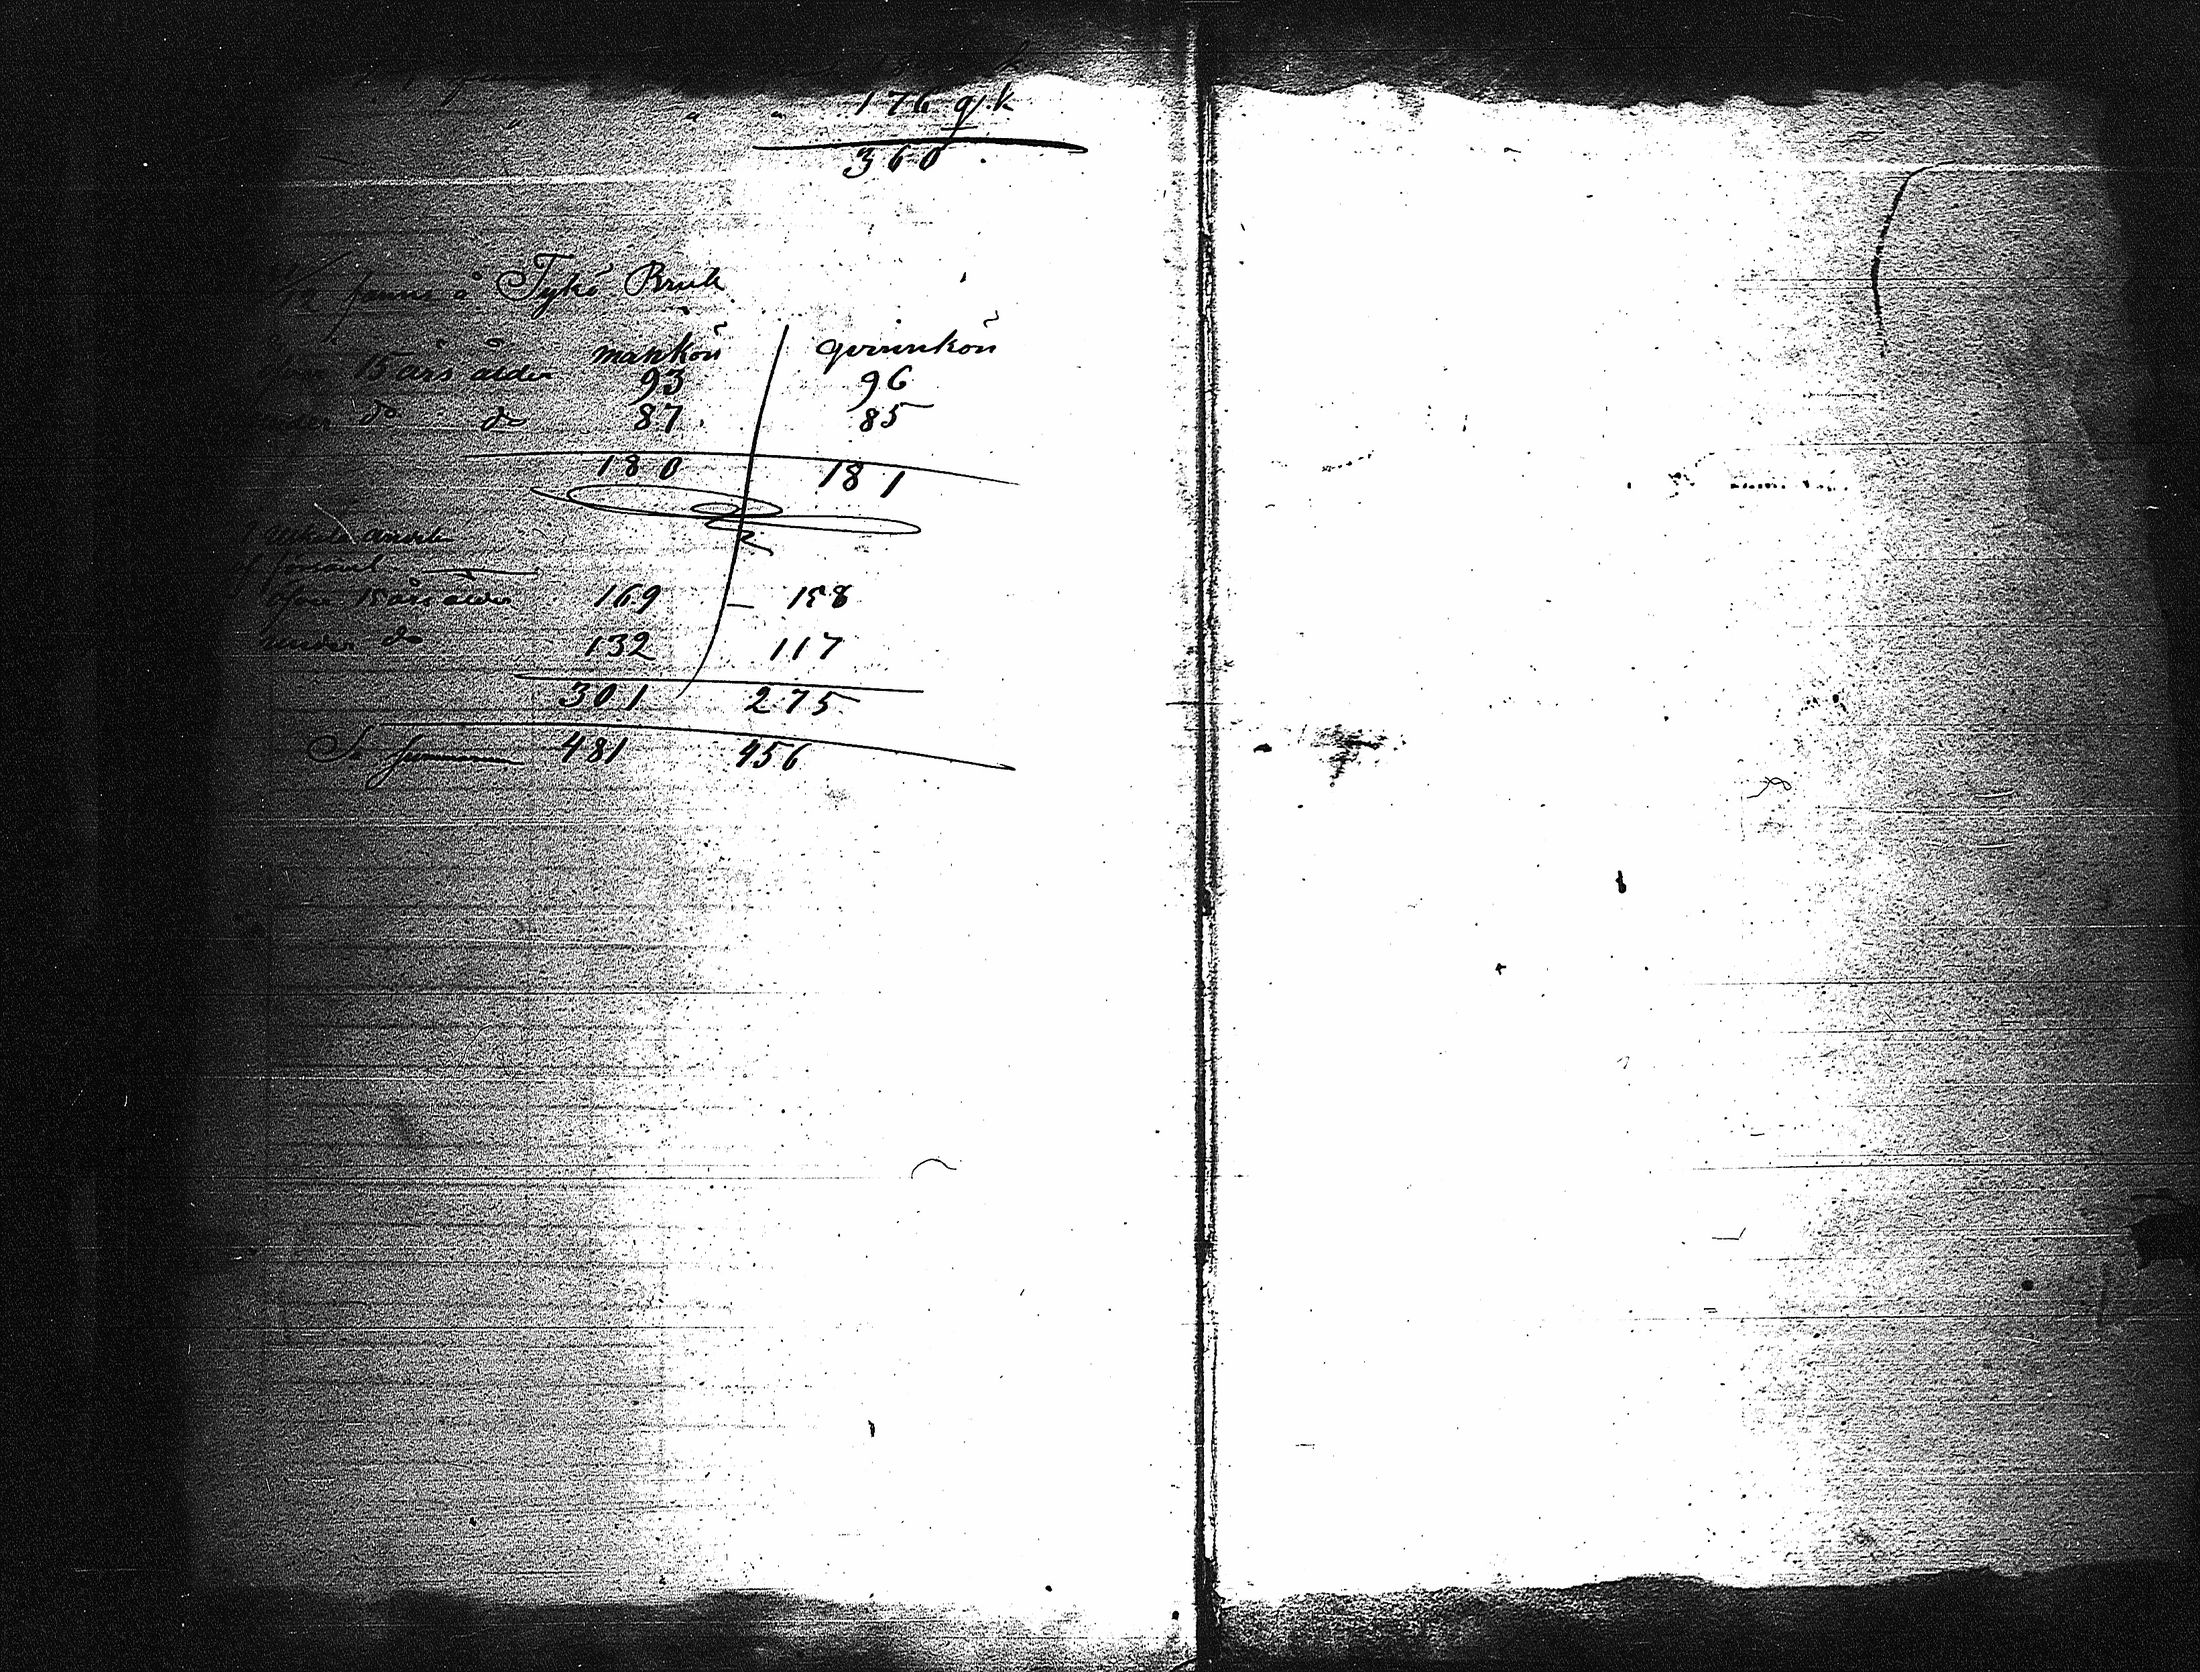 176 q.k
360
1/12 fanns å Tykö Bruk
mankön qvinnkön
öfver 15 års ålder 93 96
under do do 87 85
180 181
169 158
öfver 15 års ålder
under do 132 117
301 275
Sa summa 481 456